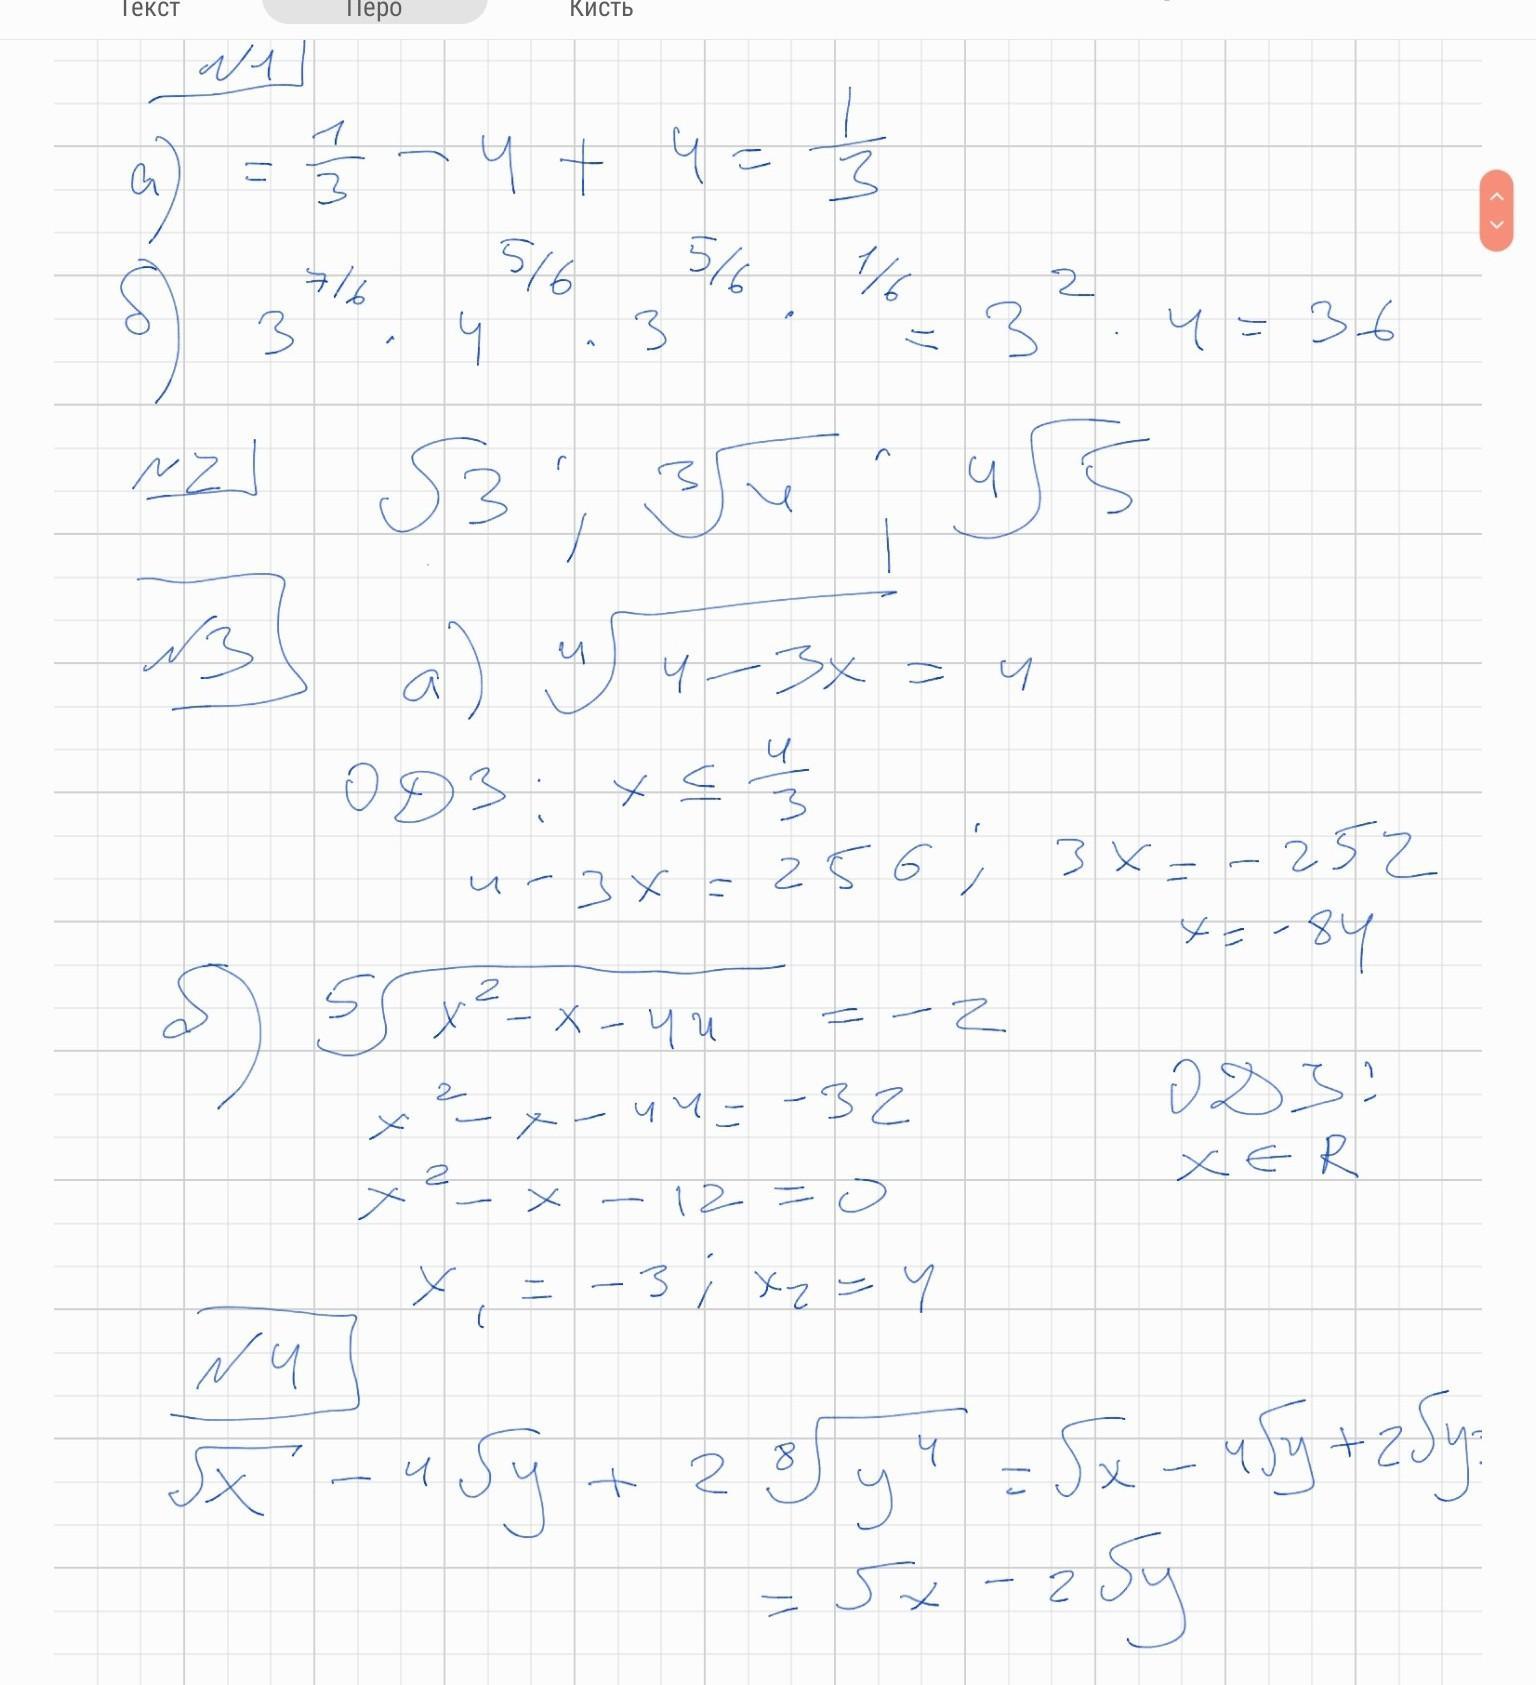 Текст Перо Кисть
N1
а) = 1/3 - 4 + 4 = 1/3
б) 3^7/6 · 4^5/6 · 3^5/6 · ^1/6 = 3^2 · 4 = 36
N2 √3 ; ∛4 ; ∜5
N3 а) ∜4-3x = 4
ОДЗ: x ≤ 4/3
4 - 3x = 256 ; 3x = -252
x = -84
б) ⁵√x² - x - 44 = -2
x² - x - 44 = -32 ОДЗ:
x ∈ R
x² - x - 12 = 0
x₁ = -3 ; x₂ = 4
N4
√x - 4√y + 2 ⁸√y⁴ = √x - 4√y + 2√y =
= √x - 2√y